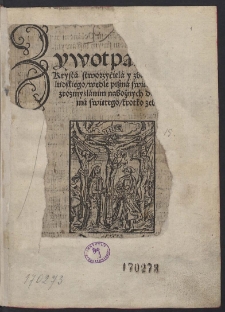 Zywot pa
Krysta stworzyciela y zb
litoskiego/ wedle pisma swi
z rozmyslanim nabożnych d
ma swietego/ krotko ze
170273
170273